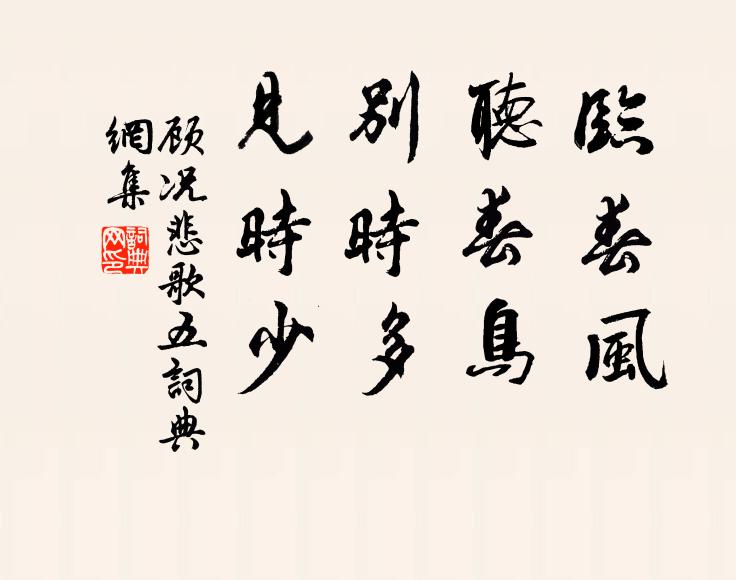 臨春風
聽春鳥
別時多
見時少
顾况悲歌五詞典
網集
詞典
网印